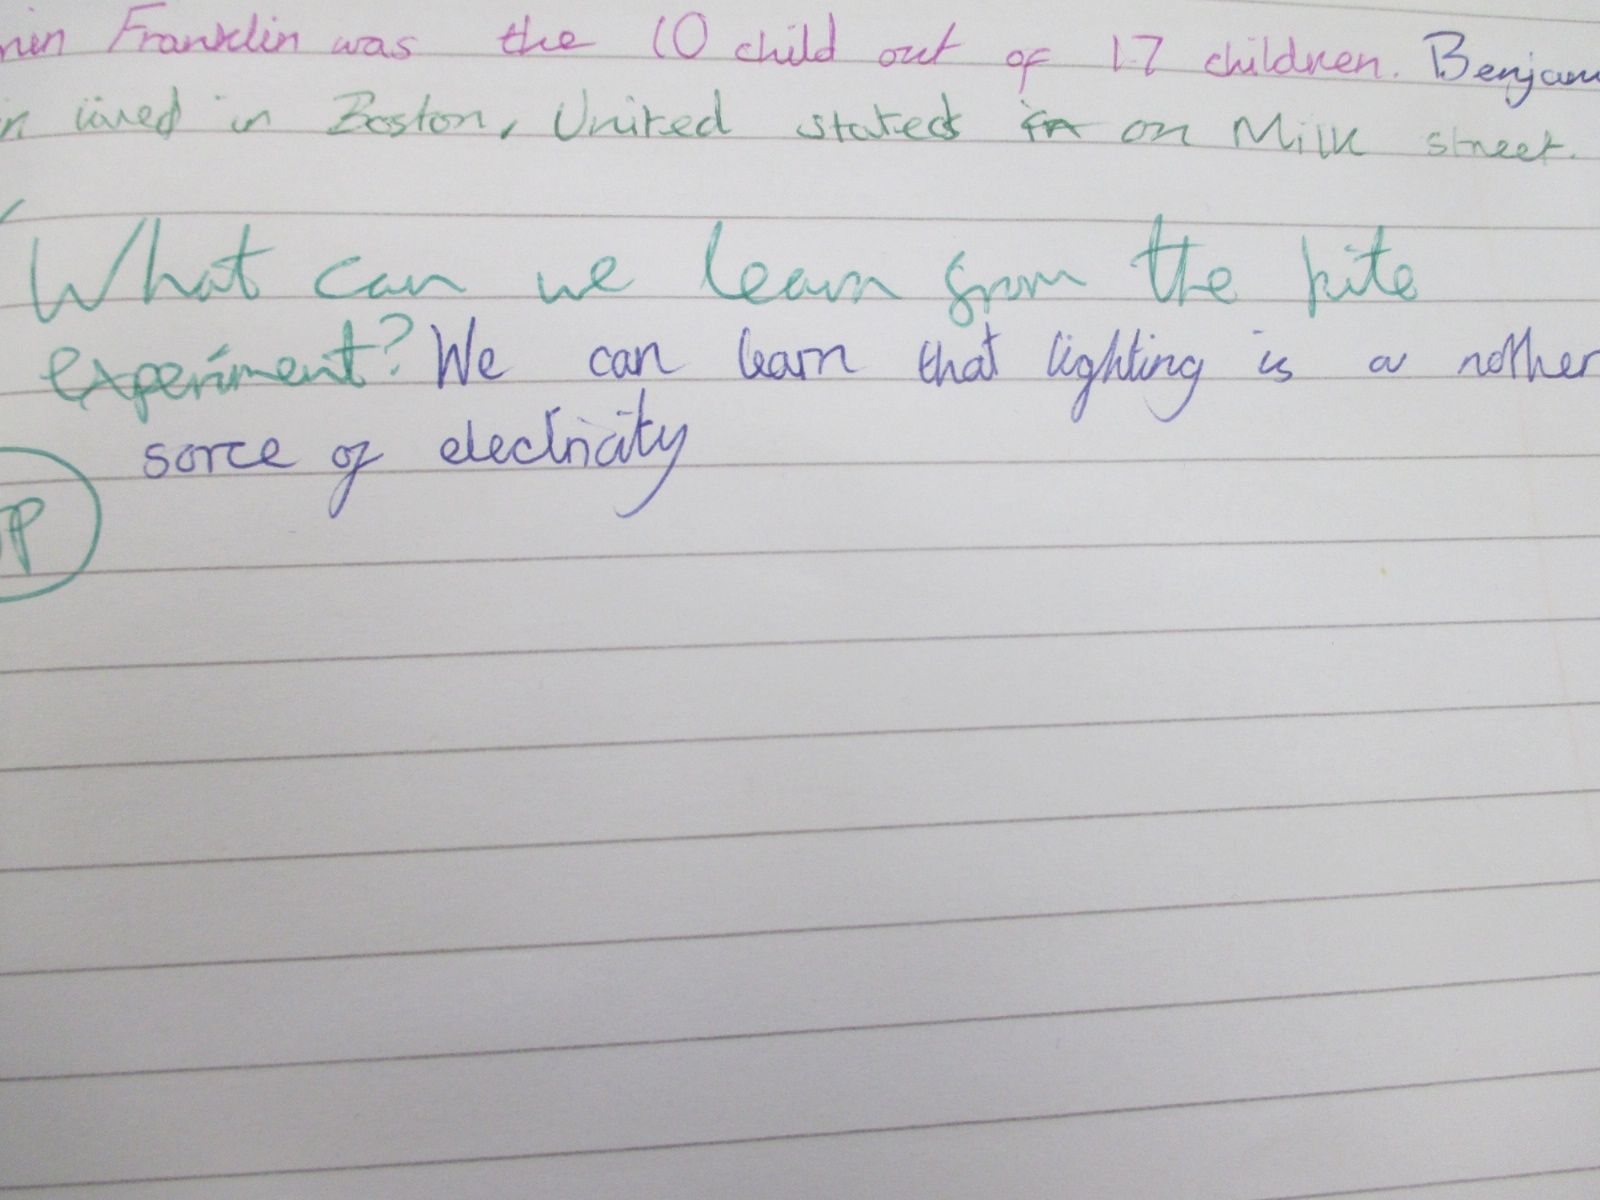 min Franklin was the 10 child out of 17 children. Benjam
in lived in Boston, United states on Milk street.
What can we learn from the kite
experiment? We can learn that lighting is a nother
sorce of electricity
P